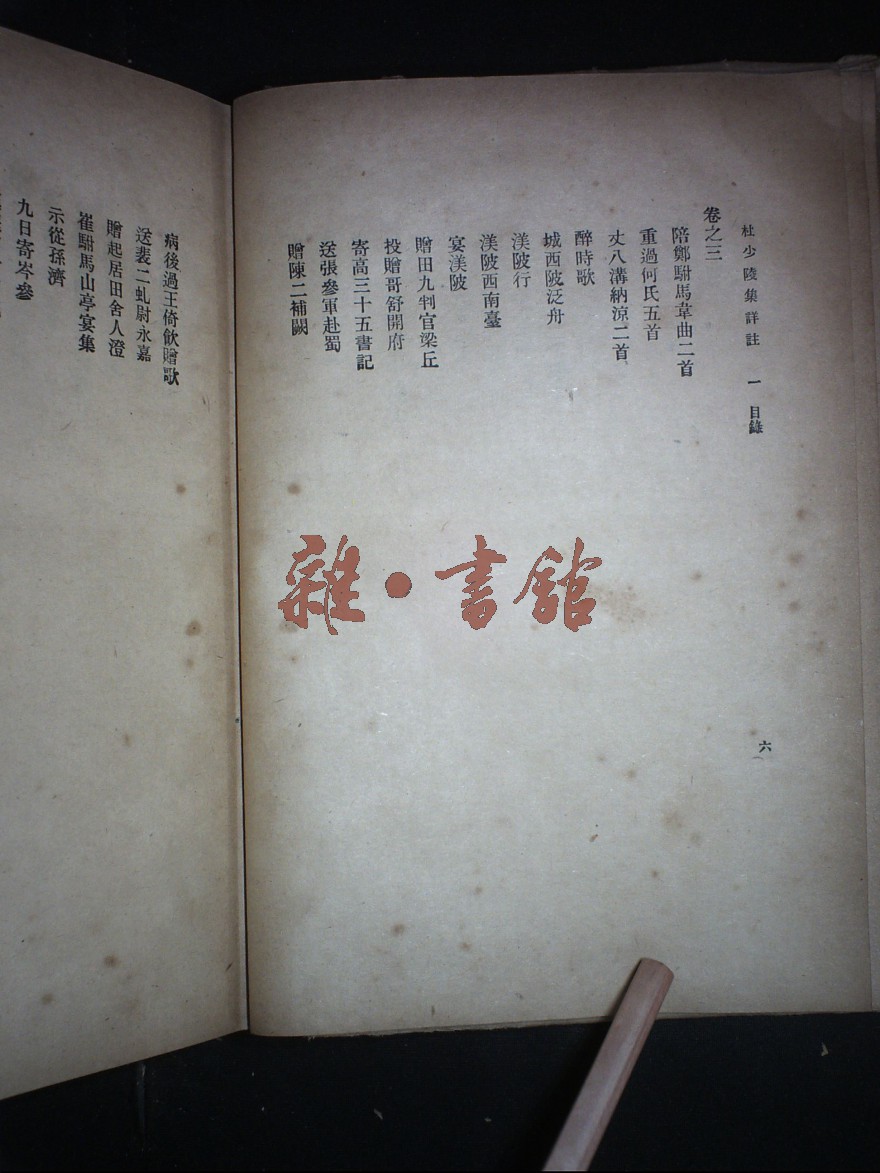 杜少陵集詳註 一 目錄
六
卷之三
陪鄭駙馬韋曲二首
重過何氏五首
丈八溝納涼二首
醉時歌
城西陂泛舟
渼陂行
渼陂西南臺
宴渼陂
贈田九判官梁丘
投贈哥舒開府
寄高三十五書記
送張參軍赴蜀
贈陳二補闕
病後過王倚飲贈歌
送裴二虬尉永嘉
贈起居田舍人澄
崔駙馬山亭宴集
示從孫濟
九日寄岑參
雜·書館